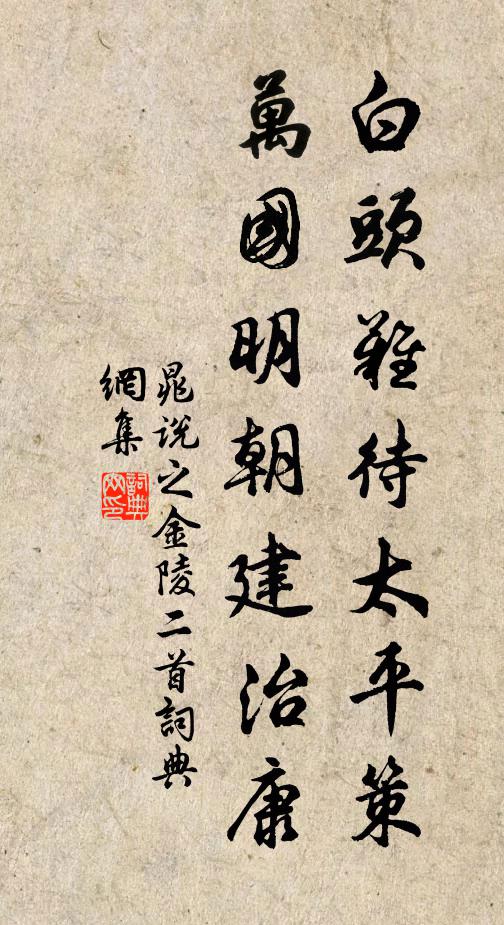 白頭難待太平策
萬國明朝建治康
晁說之金陵二首詞典
網集
詞典
網印